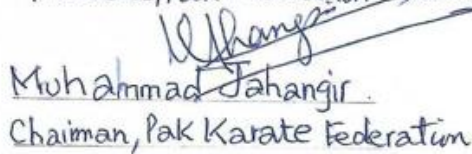 Muhammad Jahangir.
Chaiman, Pak Karate Federation